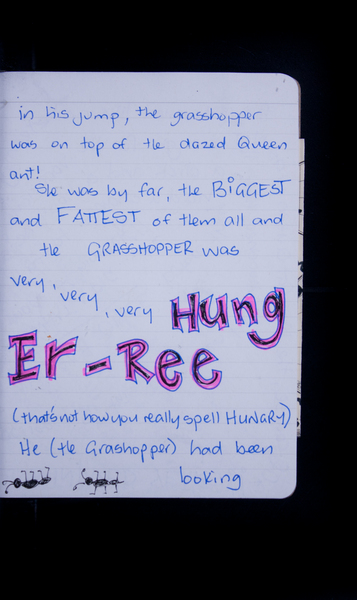 in his jump, the grasshopper
was on top of the dazed Queen
ant!
She was by far, the BiGGEST
and FATTEST of them all and
the GRASSHOPPER was
very, very, very Hung
Er-Ree
(that's not how you really spell HUNGRY)
He (the Grashopper) had been
looking